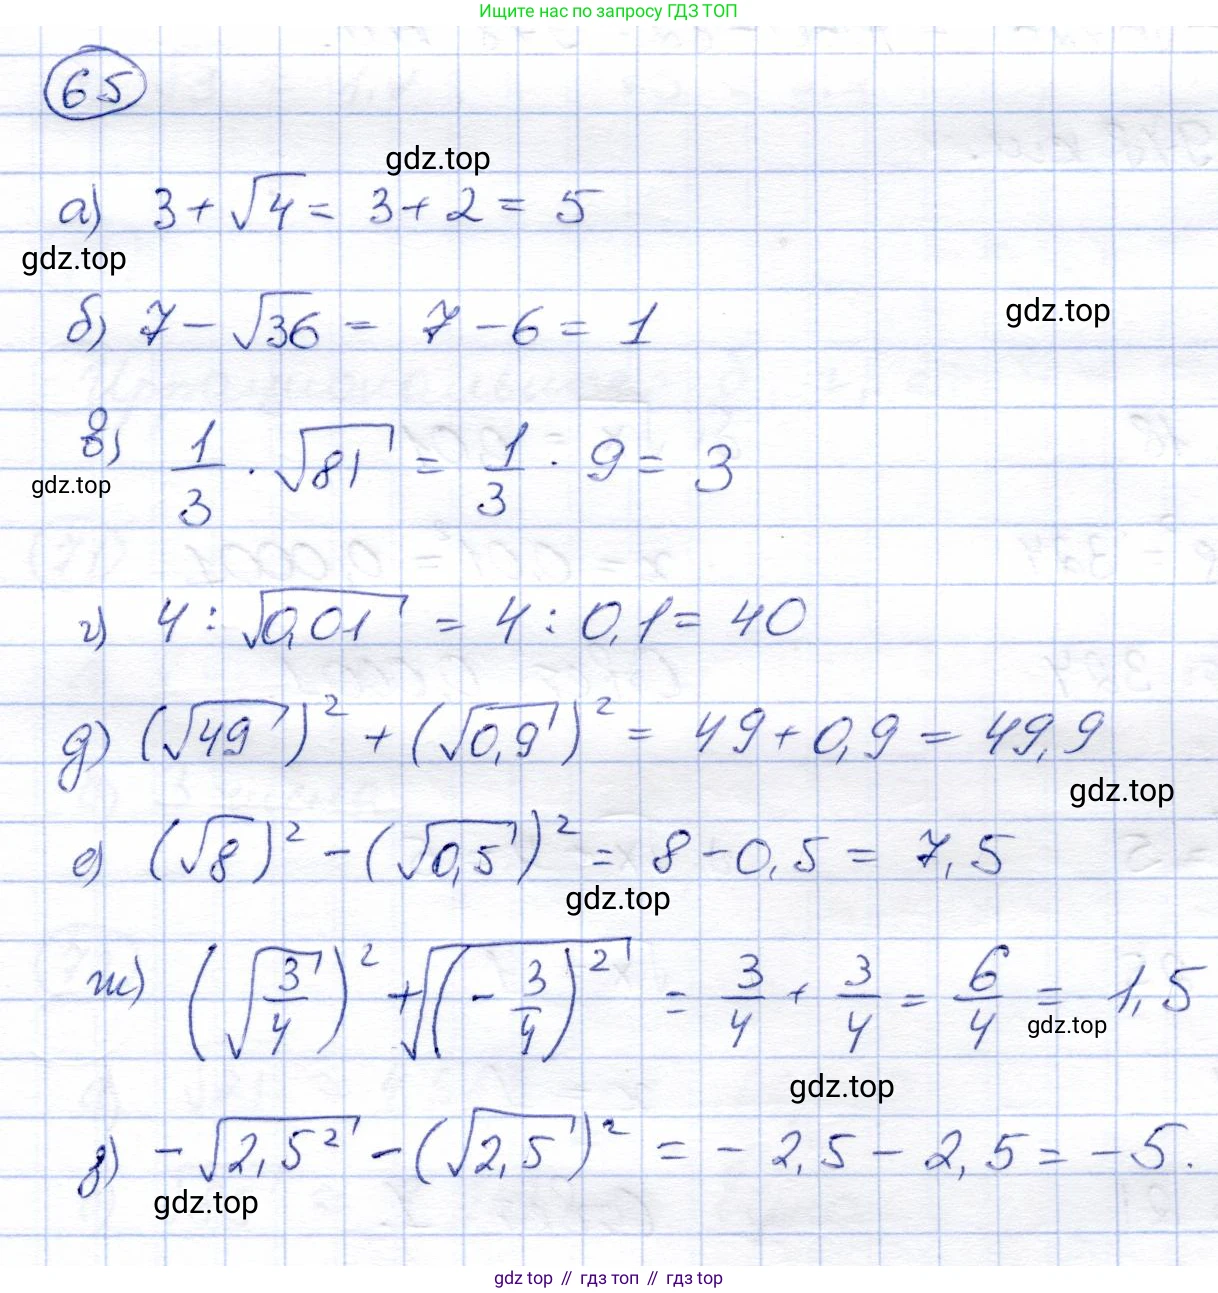 Ищите нас по запросу ГДЗ ТОП
65
gdz.top
а) 3 + √4 = 3 + 2 = 5
gdz.top
б) 7 - √36 = 7 - 6 = 1
gdz.top
в) 1/3 · √81 = 1/3 · 9 = 3
gdz.top
г) 4 : √0,01 = 4 : 0,1 = 40
д) (√49)² + (√0,9)² = 49 + 0,9 = 49,9
gdz.top
е) (√8)² - (√0,5)² = 8 - 0,5 = 7,5
gdz.top
ж) (√3/4)² + √(-3/4)² = 3/4 + 3/4 = 6/4 = 1,5
gdz.top
gdz.top
з) -√2,5² - (√2,5)² = -2,5 - 2,5 = -5.
gdz.top
gdz top // гдз топ // гдз top